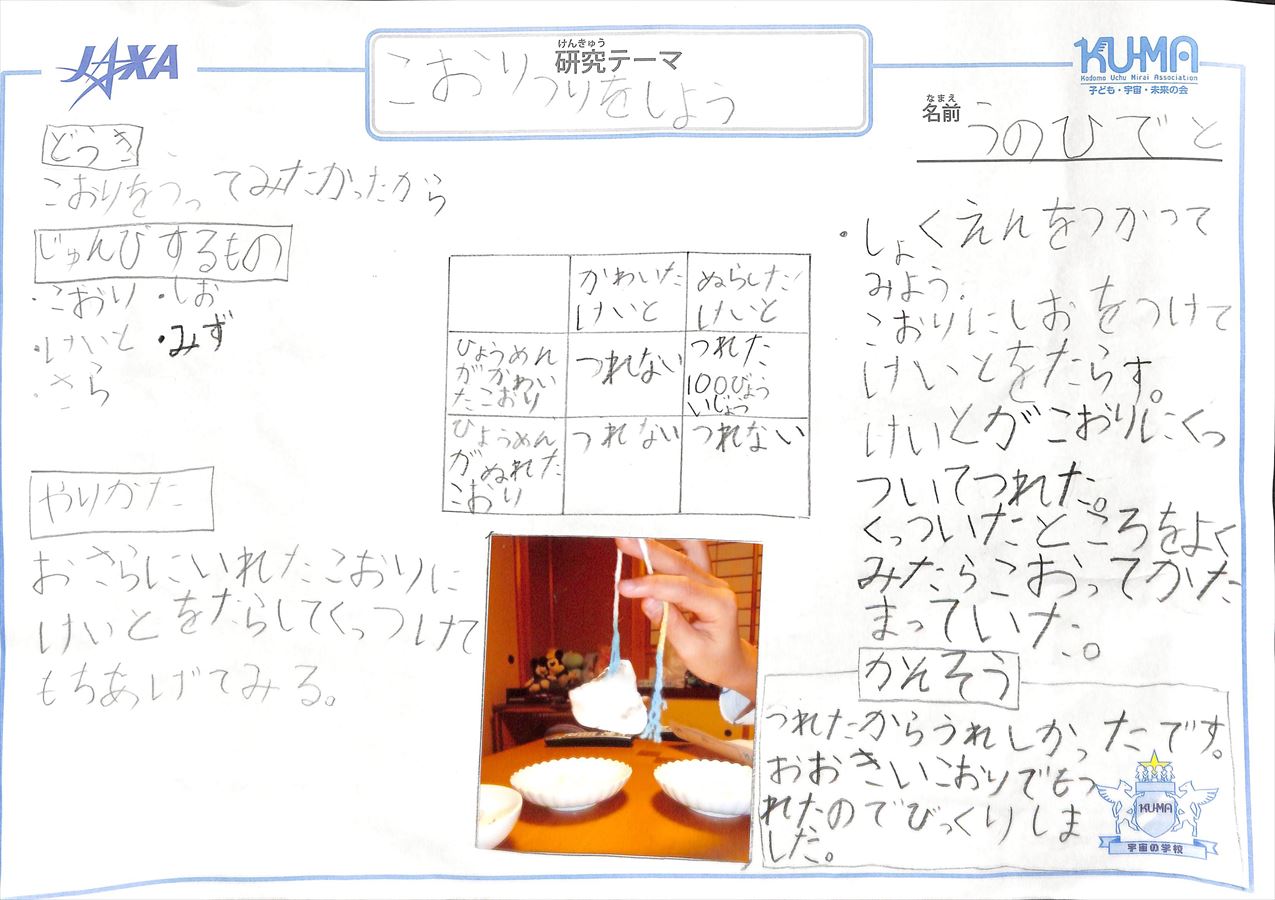 JAXA
けんきゅう
研究テーマ
こおりつりをしよう
KU-MA
Kodomo Uchu Mirai Association
子ども・宇宙・未来の会
なまえ
名前
うのひでと
どうき
こおりをつってみたかったから
じゅんびするもの
・こおり ・しお
・けいと ・みず
・さら
やりかた
おさらにいれたこおりに
けいとをたらしてくっつけて
もちあげてみる。
かわいた
けいと
ぬらした
けいと
ひょうめん
がかわい
たこおり
つれない
つれた
100びょう
いじょう
ひょうめん
がぬれた
こおり
つれない
つれない
・しょくえんをつかって
みよう。
こおりにしおをつけて
けいとをたらす。
けいとがこおりにくっ
ついてつれた。
くっついたところをよく
みたらこおってかた
まっていた。
かんそう
つれたからうれしかったです。
おおきいこおりでもつ
れたのでびっくりしま
した。
KUMA
宇宙の学校